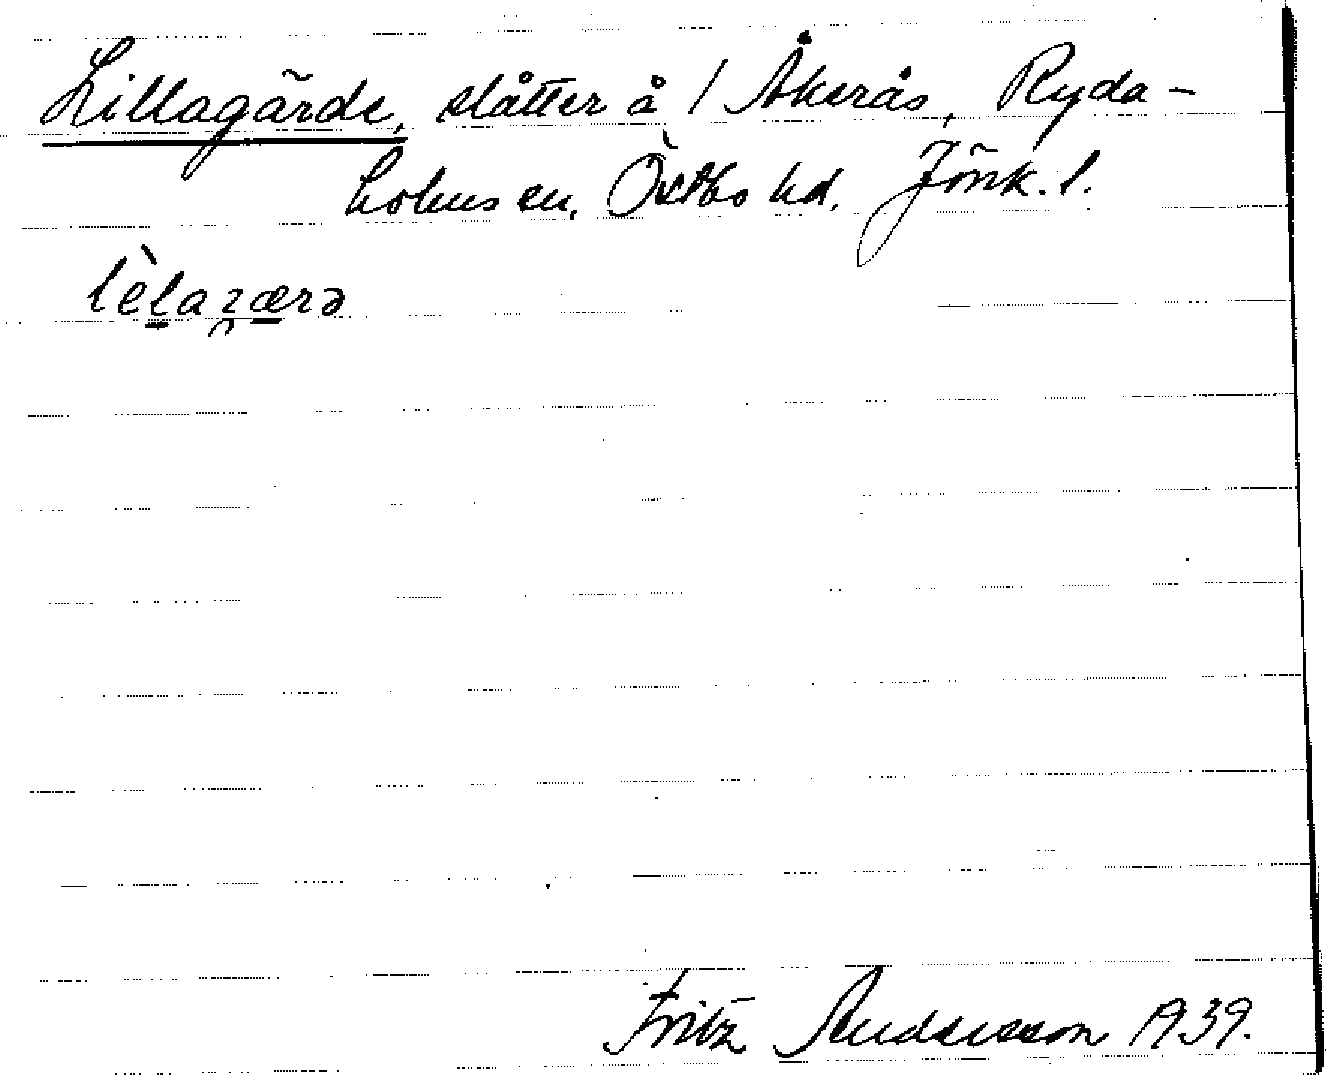 Lillagärde, slåtter å / Åkerås, Ryda-
holms sn, Östbo hd. Jönk. l.
lèlagærə
Fritz Andersson 1939.